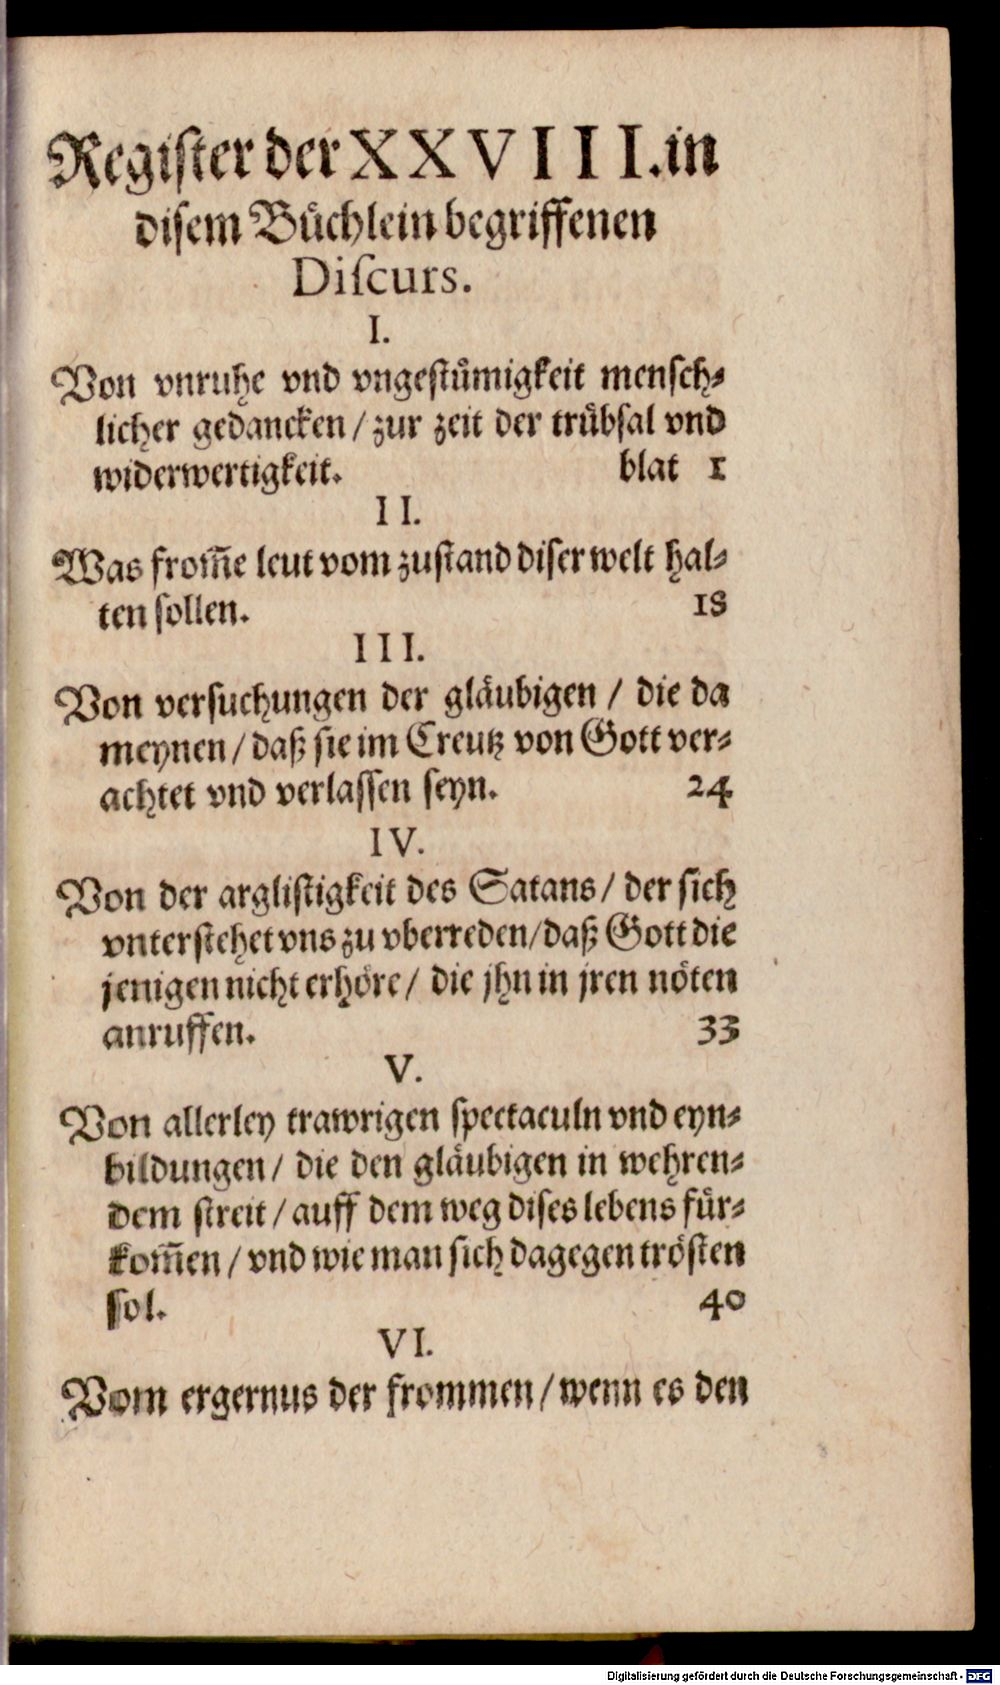 Register der XXVIII. in
disem Büchlein begriffenen
Discurs.
I.
Von vnruhe vnd vngestümigkeit mensch-
licher gedancken / zur zeit der trübsal vnd
widerwertigkeit. blat 1
II.
Was from̄e leut vom zustand diser welt hal-
ten sollen. 18
III.
Von versuchungen der gläubigen / die da
meynen / daß sie im Creutz von Gott ver-
achtet vnd verlassen seyn. 24
IV.
Von der arglistigkeit des Satans / der sich
vnterstehet vns zu vberreden / daß Gott die
jenigen nicht erhöre / die jhn in jren nöten
anruffen. 33
V.
Von allerley trawrigen spectaculn vnd eyn-
bildungen / die den gläubigen in wehren-
dem streit / auff dem weg dises lebens für-
kom̄en / vnd wie man sich dagegen trösten
sol. 40
VI.
Vom ergernus der frommen / wenn es den
Digitalisierung gefördert durch die Deutsche Forschungsgemeinschaft - DFG